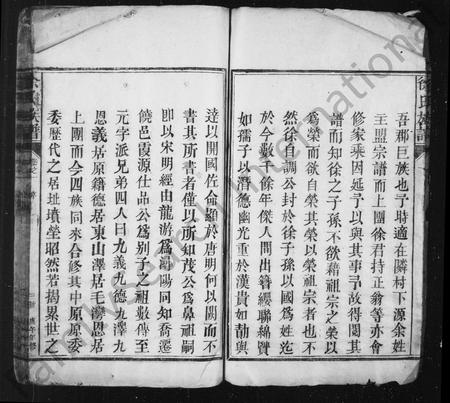 吾郡巨族也予時適在隣村下源余姓
主盟宗譜而上團徐君持正翁等亦會
修家乘因延予以與其事予故得閱其
譜而知徐之子孫不欲藉祖宗之榮以
為榮而欲自榮其榮以榮祖宗者也不
然徐自調公封於徐子孫以國為姓迄
於今數千餘年傑人間出簪纓聯綿賢
如孺子以潛德幽光重於漢貴如勣與
達以開國佐命顯於唐明何以闕而不
書其所序者僅以所知茂公為鼻祖嗣
即以宋明經由龍游為潯陽同知喬遷
饒邑霞源仕品公為別子之祖數傳至
元字派兄弟四人曰九義九德九澤九
恩義居原籍德居東山澤居毛源恩居
上團而今四族同來合修其中原原委
委歷代之居址墳塋昭然若揭累世之
徐氏族譜